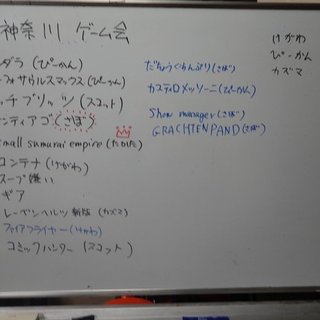 神奈川 ゲーム会
ダラ (ぴーかん)
サウルスマックス (ぴーかん)
ッチブリッツ (スコット)
ンティアゴ (さぼ)
small sumurai empire (たかはた)
コンテナ (けがわ)
スープ嫌い
ギア
レーベンヘルツ 新版 (カズマ)
ファイアフライヤー (けがわ)
コミックハンター (スコット)
だちょうぐらんぷり (さぼ)
カスティロメッソーニ (ぴーかん)
Show manager (さぼ)
GRACHTENPAND (さぼ)
けがわ
ぴーかん
カズマ